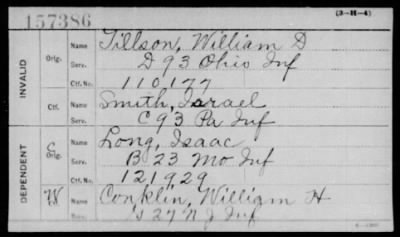 157386
(3-H-4)
INVALID
Orig.
Name Tillson, William D
Serv. D 93 Ohio Inf
Ctf. No. 110177
Ctf.
Name Smith, Israel
Serv. C 93 Pa Inf
DEPENDENT
C
Orig.
Name Long, Isaac
Serv. B 23 Mo Inf
Ctf. No. 121929
W
Name Conklin, William H
27 N J Inf